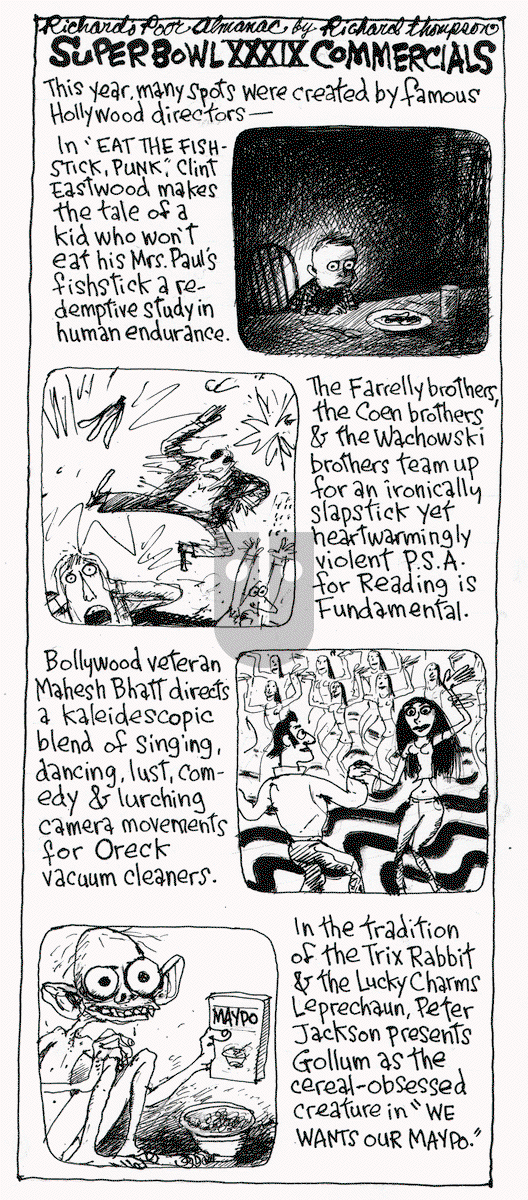 Richard's Poor Almanac by Richard Thompson
SUPER BOWL XXXIX COMMERCIALS
This year, many spots were created by famous
Hollywood directors—
In "EAT THE FISH-
STICK, PUNK," Clint
Eastwood makes
the tale of a
kid who won't
eat his Mrs. Paul's
fishstick a re-
demptive study in
human endurance.
The Farrelly brothers,
the Coen brothers
& the Wachowski
brothers team up
for an ironically
slapstick yet
heartwarmingly
violent P.S.A.
for Reading is
Fundamental.
Bollywood veteran
Mahesh Bhatt directs
a kaleidescopic
blend of singing,
dancing, lust, com-
edy & lurching
camera movements
for Oreck
vacuum cleaners.
In the tradition
of the Trix Rabbit
& the Lucky Charms
Leprechaun, Peter
Jackson presents
Gollum as the
cereal-obsessed
creature in "WE
WANTS OUR MAYPO."
MAYPO